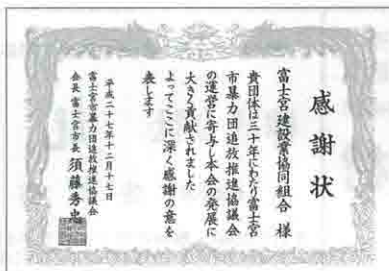 感謝状
富士宮建設業協同組合 様
貴団体は三十年にわたり富士宮
市暴力団追放推進協議会
の運営に寄与し本会の発展に
大きく貢献されました
よってここに深く感謝の意を
表します
平成二十七年十二月十七日
富士宮市暴力団追放推進協議会
会長 富士宮市長 須藤秀忠